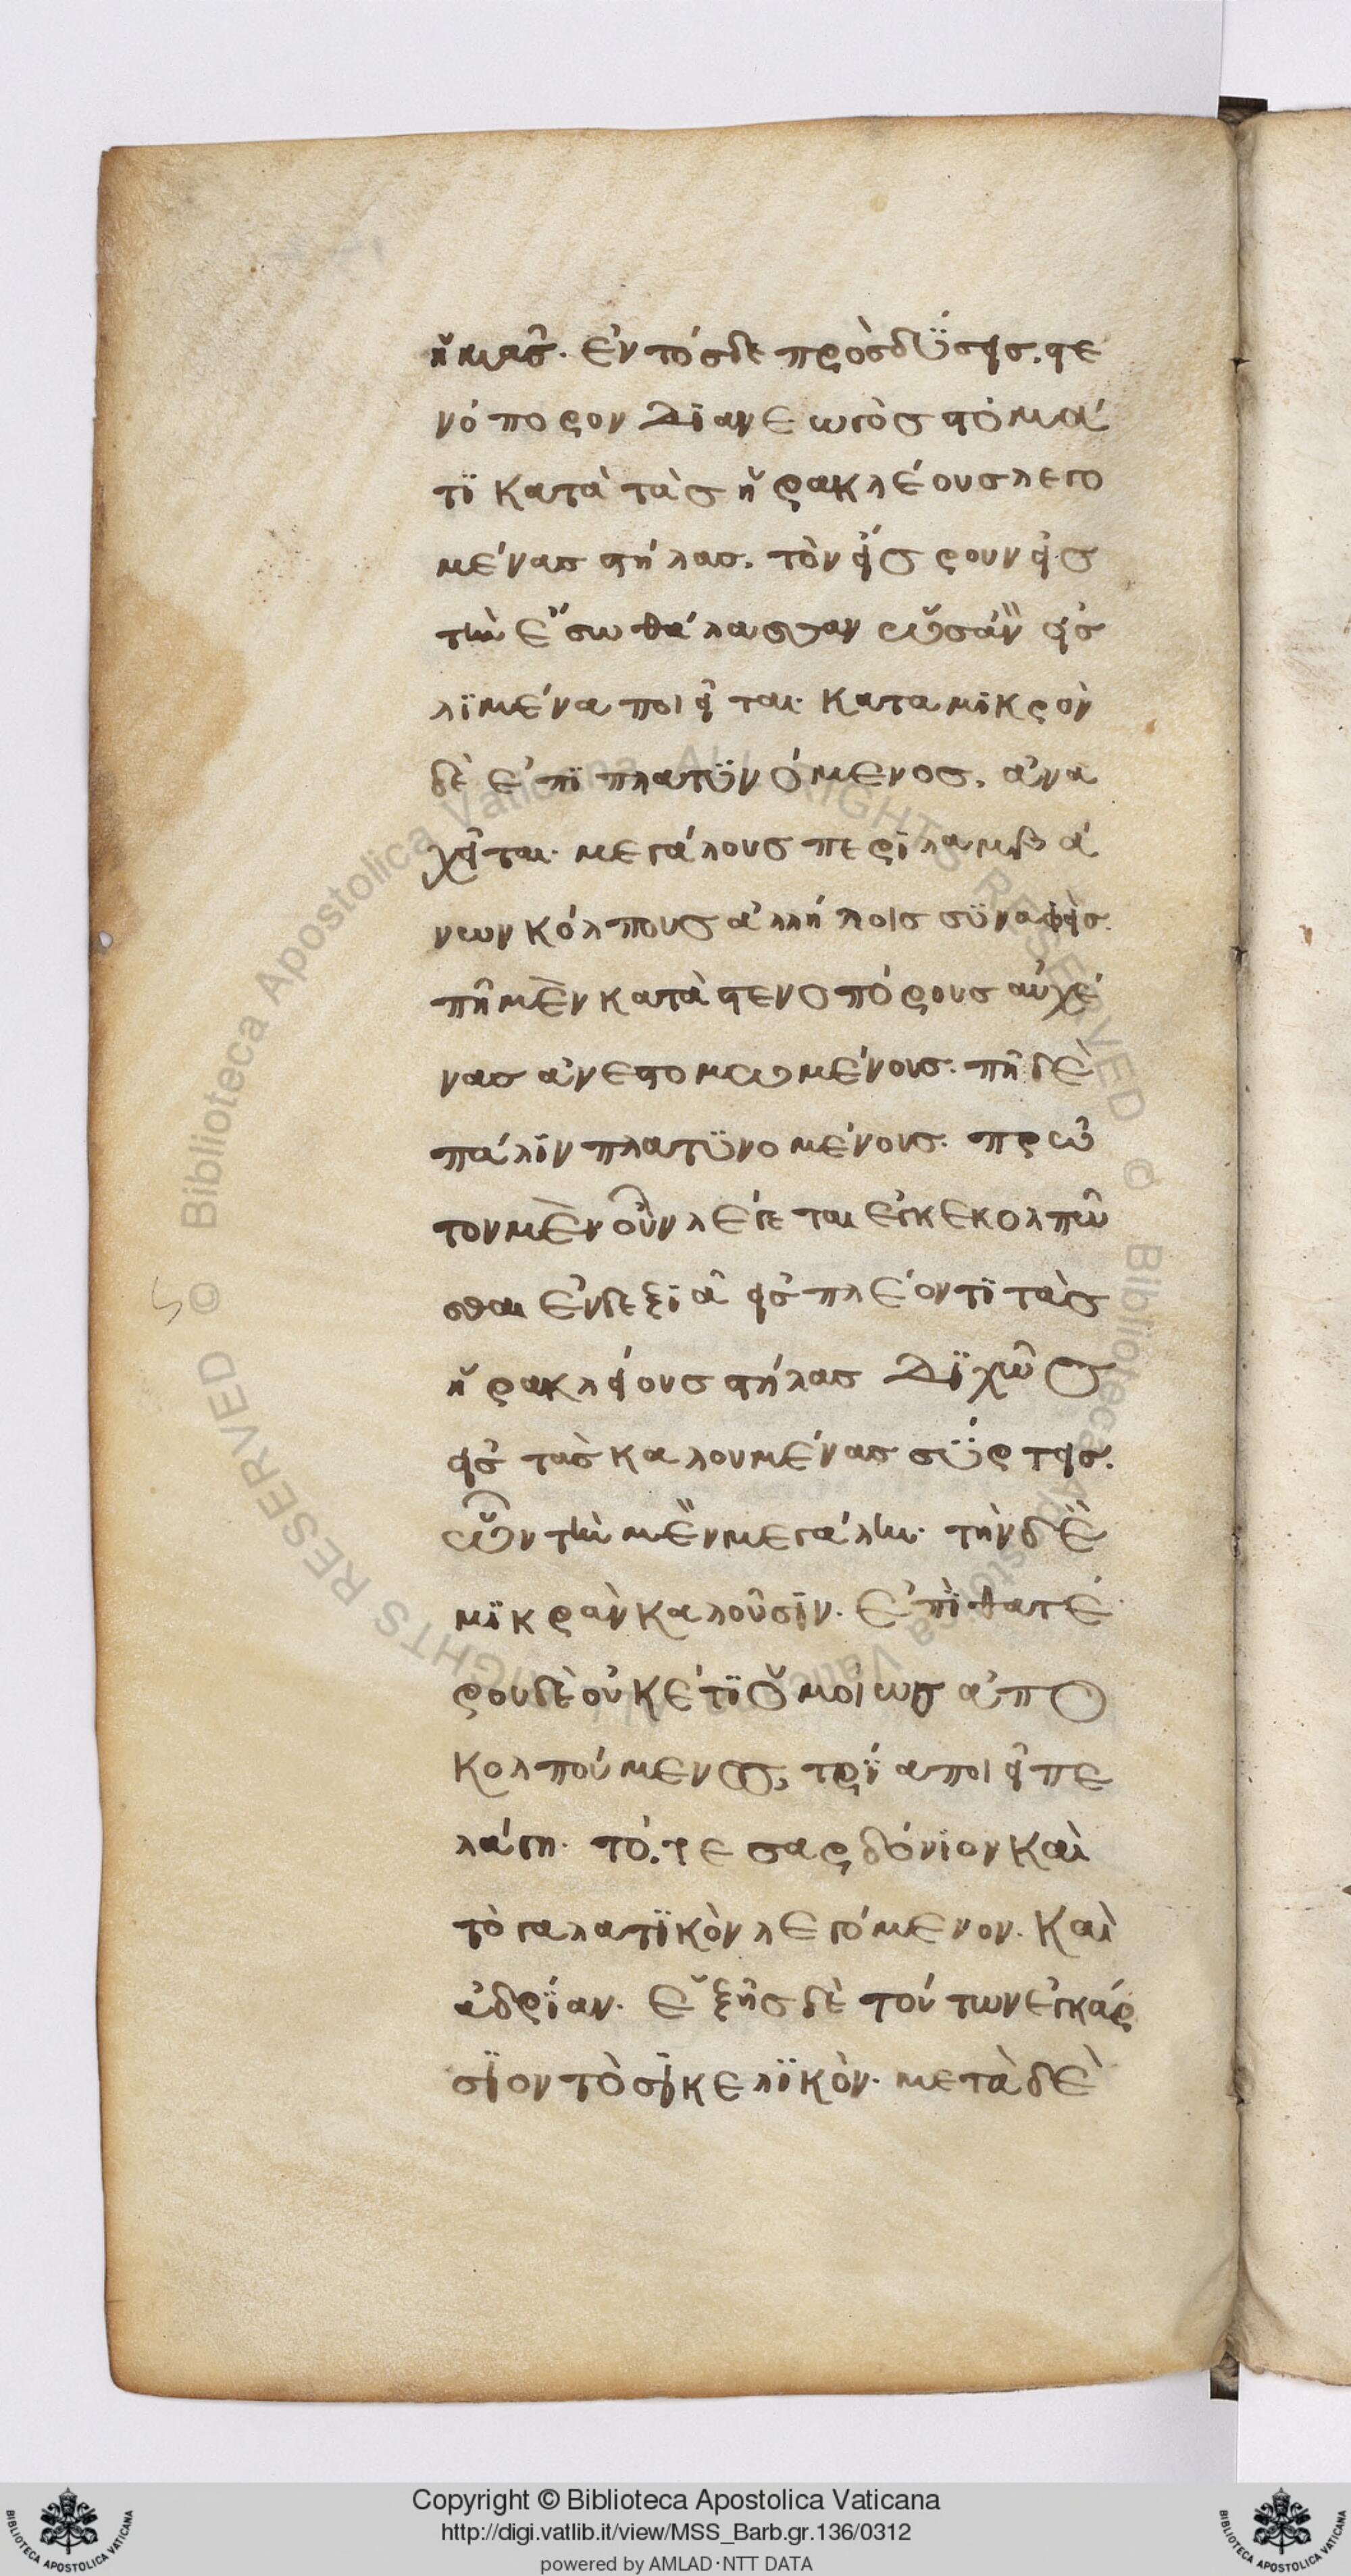 ἡμᾶς. ἐν τόσδε πρὸς δύσεις. στε
νόπορον διανεωγὸς στόμα
τι κατὰ τὰς ἡρακλέους λεγο
μένας στήλας. τὸν εἴς ρουν εἰς
τὴν ἔσω θάλασσαν ὡσὰν εἰς
λιμένα ποιεῖται· κατα μικρὸν
δὲ ἐπιπλατυνόμενος, ἀνα
χεῖται· μεγάλους περιλαμβά
νων κόλπους ἀλλήλοις συναφεῖς.
πῆ μὲν κατὰ στενοπόρους αὐχέ
νας ἀνεστομωμένους. πῆ δὲ
πάλιν πλατυνομένους. πρῶ
τον μὲν οὖν λέγεται ἐγκεκολπῶ
σθαι ἐν δεξιᾷ εἰσπλέοντι τὰς
ἡρακλείους στήλας διχῶς
εἰς τὰς καλουμένας σύρτεις.
ὧν τὴν μὲν μεγάλην· τὴν δὲ
μικρὰν καλοῦσιν. ἐπὶ θατέ
ρου δὲ οὐκέτι ὁμοίως ἀπο
κολπούμενος, τρία ποιεῖ πε
λάγη. τό, τε σαρδόνιον καὶ
τὸ γαλατικὸν λεγόμενον. καὶ
ἀδρίαν. ἑξῆς δὲ τούτων ἐγκάρ
σιον τὸ σικελικὸν. μετὰ δὲ
Copyright © Biblioteca Apostolica Vaticana
http://digi.vatlib.it/view/MSS_Barb.gr.136/0312
powered by AMLAD·NTT DATA